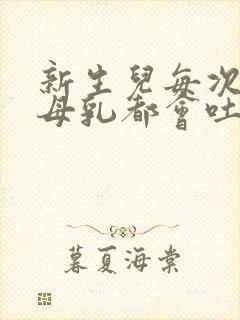 新生兒每次
母乳都會吐
暮夏海棠